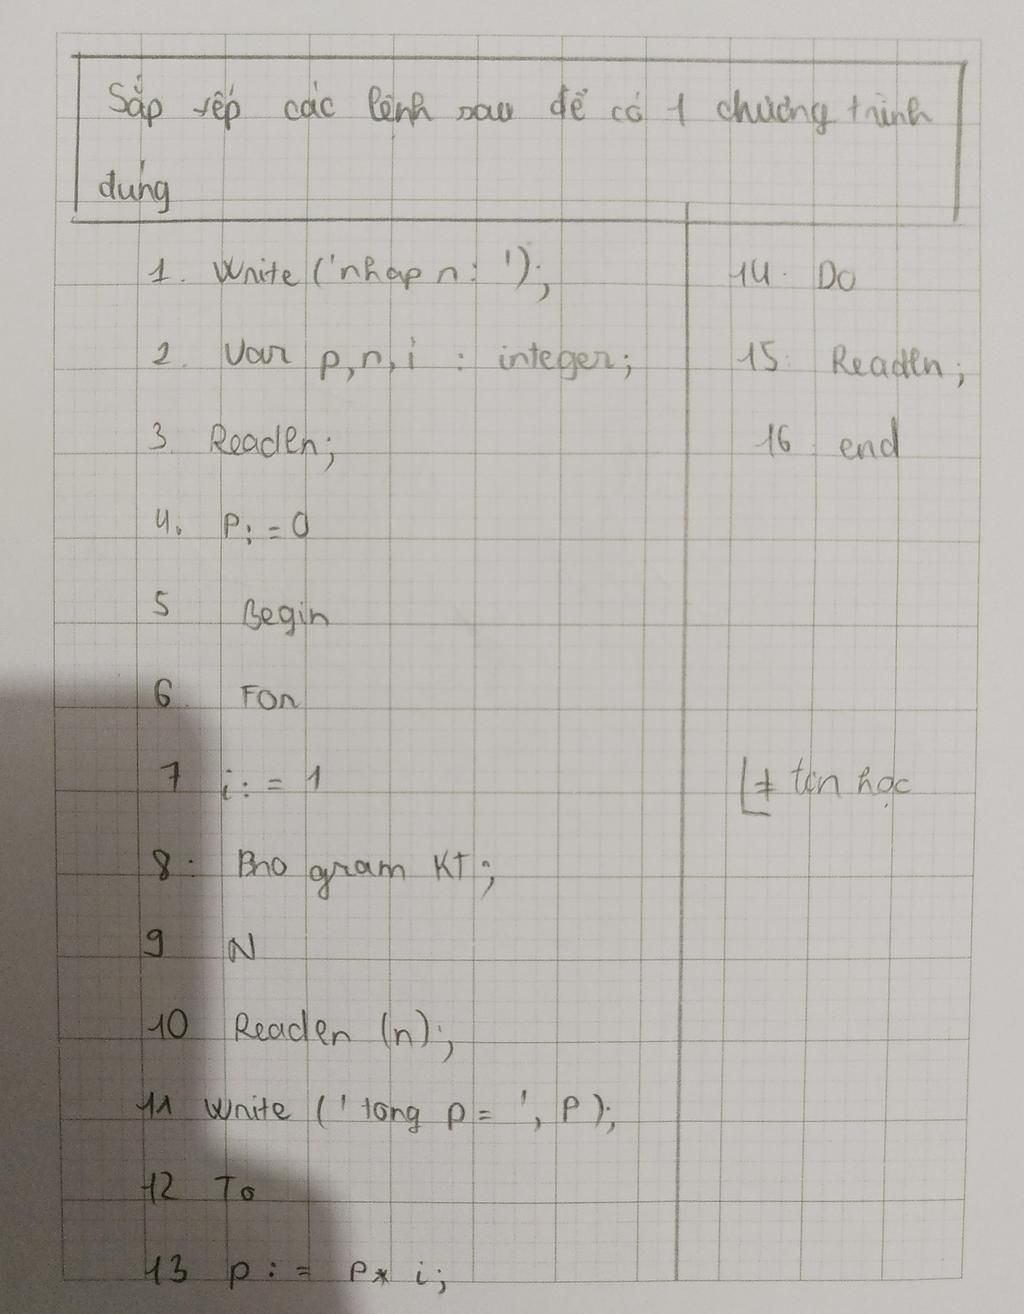 Sắp xếp các lệnh sau để có 1 chương trình
đúng
1. Write ('nhap n: ');
2. Var p,n,i : integer;
3. Readln;
4. P:=0
5 Begin
6. For
7 i:=1
8. Program KT;
9 N
10 Readln (n);
11 Write ('tong p= ', P);
12 To
13 p:= P* i;
14. Do
15. Readln;
16 end
tin học